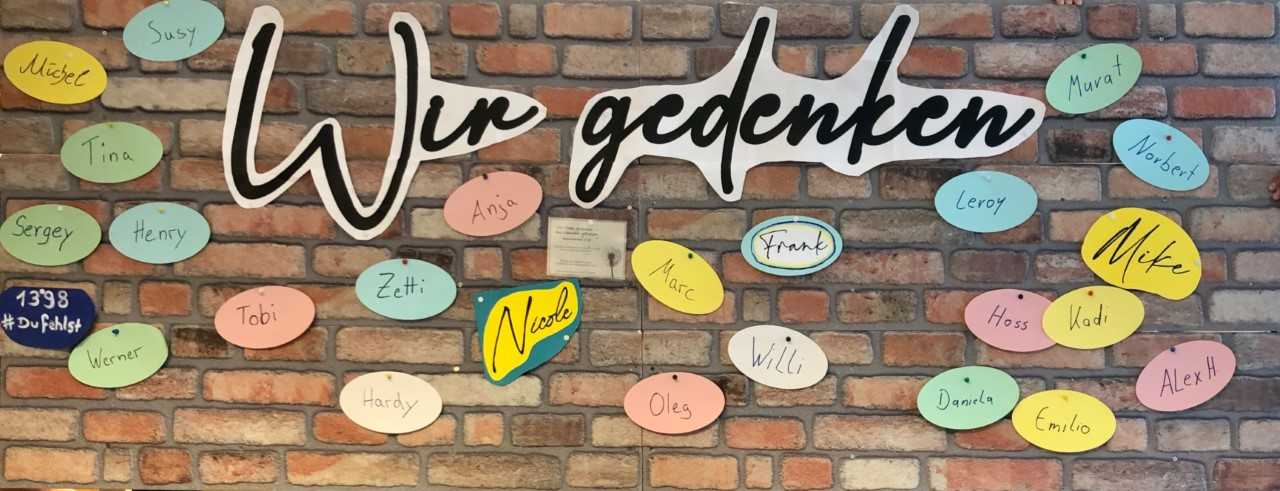 Wir gedenken
Susy
Michel
Murat
Tina
Norbert
Anja
Leroy
Sergey
Henry
Frank
Mike
Zetti
Marc
1398
#Dufehlst
Tobi
Nicole
Hoss
Kadi
Werner
Willi
Alex H.
Hardy
Oleg
Daniela
Emilio